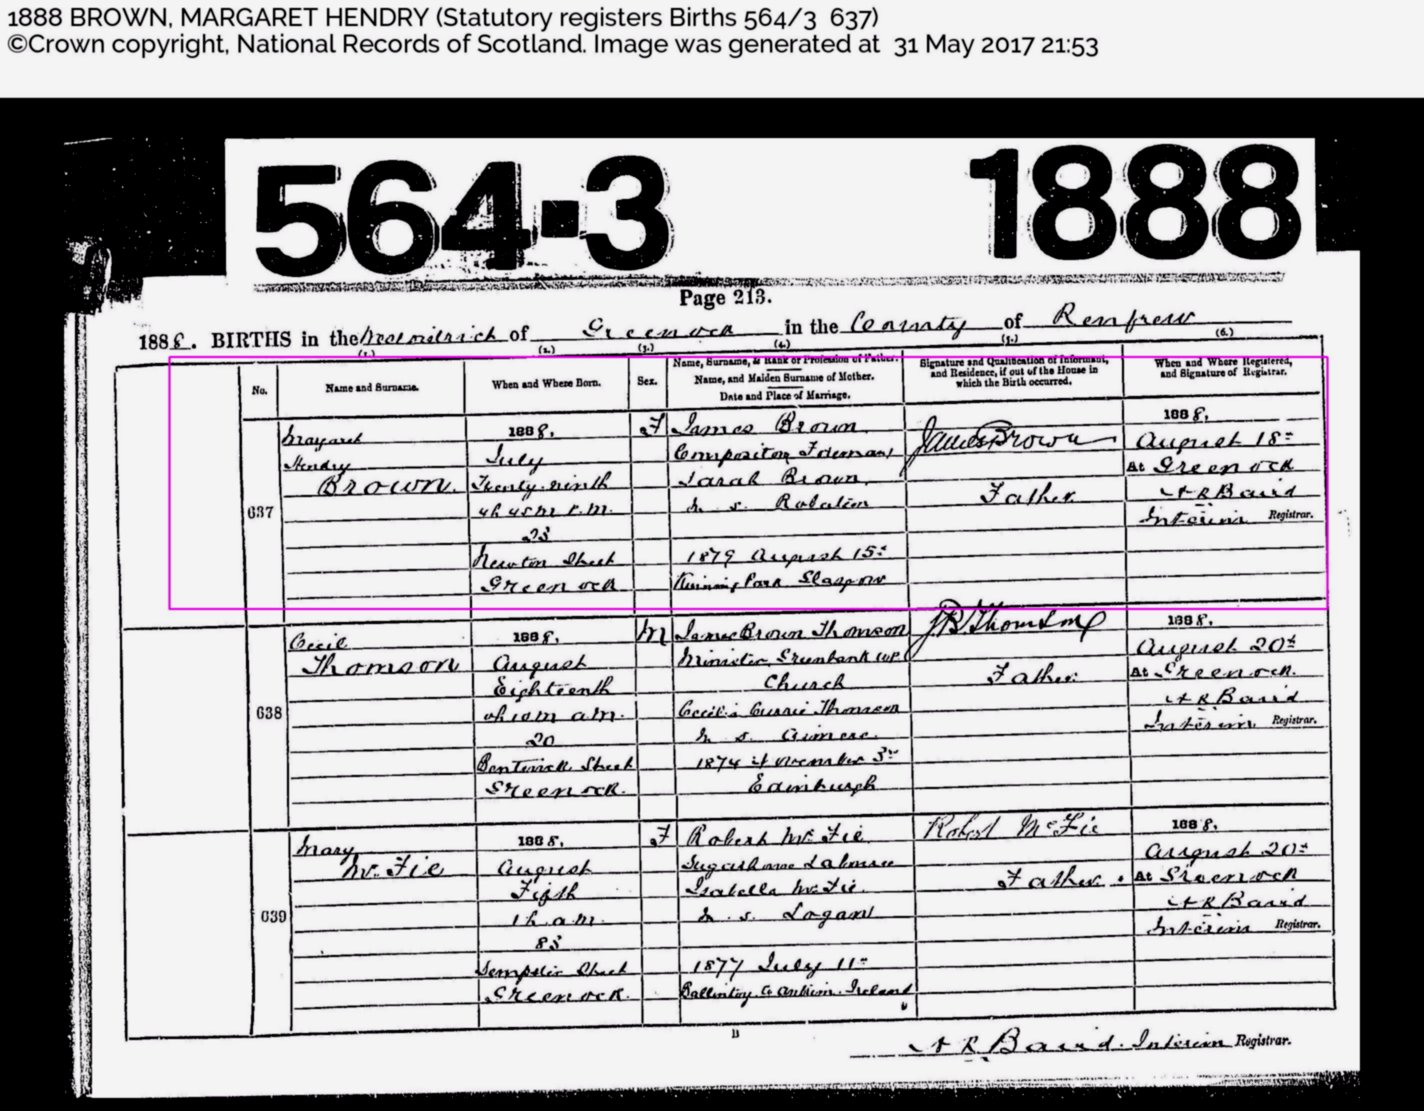 1888 BROWN, MARGARET HENDRY (Statutory registers Births 564/3 637)
©Crown copyright, National Records of Scotland. Image was generated at 31 May 2017 21:53
564-3 1888
Page 213.
1888. BIRTHS in the District of Greenock in the County of Renfrew
(1.) (2.) (3.) (4.) (5.) (6.)
No.
Name and Surname.
When and Where Born.
Sex.
Name, Surname, & Rank or Profession of Father.
Name, and Maiden Surname of Mother.
Date and Place of Marriage.
Signature and Qualification of Informant,
and Residence, if out of the House in
which the Birth occurred.
When and Where Registered,
and Signature of Registrar.
637
Margaret
Hendry
Brown.
1888.
July
Twenty-ninth
4h 45m P.M.
23
Newton Street
Greenock
F
James Brown
Compositor, Foreman
Sarah Brown,
M. S.
1879 August 15th
Kinning Park Glasgow
James Brown
Father
1888.
August 18th
At Greenock
Baird
Interim Registrar.
638
Cecil
Thomson
1888.
August
Eighteenth
a.m.
20
Bentinck Street
Greenock.
M
James Brown Thomson
Minister, Greenbank U.P.
Church
Cecilia Currie Thomson
M. S.
1874 November 3rd
Edinburgh
J B Thomson
Father
1888.
August 20th
At Greenock.
Baird
Interim Registrar.
639
Mary
McFie
1888.
August
Fifth
1h. a.m.
83
Street
Greenock.
F
Robert McFie
Sugarhouse Labourer
Isabella McFie
M. S. Logan
1877 July 11th
Ballintoy Co Antrim Ireland
Robert McFie
Father.
1888.
August 20th
At Greenock
Baird
Interim Registrar.
B
Baird. Interim Registrar.